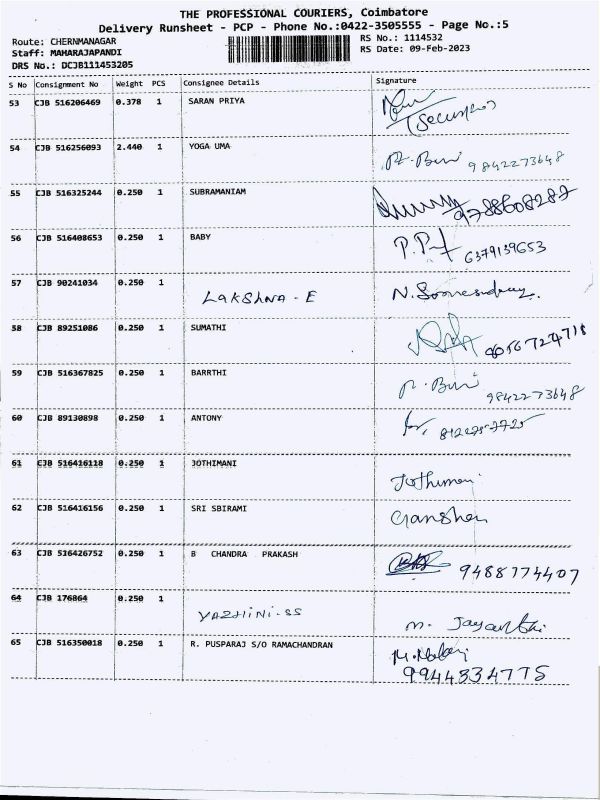 THE PROFESSIONAL COURIERS, Coimbatore
Delivery Runsheet - PCP - Phone No.:0422-3505555 - Page No.:5
Route: CHERNMANAGAR RS No.: 1114532
Staff: MAHARAJAPANDI RS Date: 09-Feb-2023
DRS No.: DCJB111453205
S No Consignment No Weight PCS Consignee Details Signature
53 CJB 516206469 0.378 1 SARAN PRIYA
(Security)
54 CJB 516256093 2.440 1 YOGA UMA 9842273648
55 CJB 516325244 0.250 1 SUBRAMANIAM 9788608287
56 CJB 516408653 0.250 1 BABY 6379139653
57 CJB 90241034 0.250 1 LAKSHNA - E
58 CJB 89251086 0.250 1 SUMATHI 8056724718
59 CJB 516367825 0.250 1 BARRTHI 9842273648
60 CJB 89130898 0.250 1 ANTONY
61 CJB 516416118 0.250 1 JOTHIMANI Jothimani
62 CJB 516416156 0.250 1 SRI SBIRAMI
63 CJB 516426752 0.250 1 B CHANDRA PRAKASH 9488774407
64 CJB 176864 0.250 1 YAZHINI-SS m. Jayanthi
65 CJB 516350018 0.250 1 R. PUSPARAJ S/O RAMACHANDRAN
9944334775